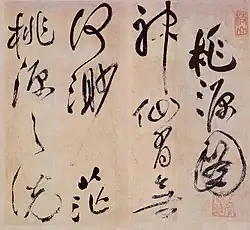 桃源圖
神仙有無
何渺茫
桃源之說